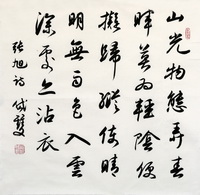 山光物態弄春
暉莫為輕陰便
擬歸縱使晴
明無雨色入雲
深處亦沾衣
張旭詩